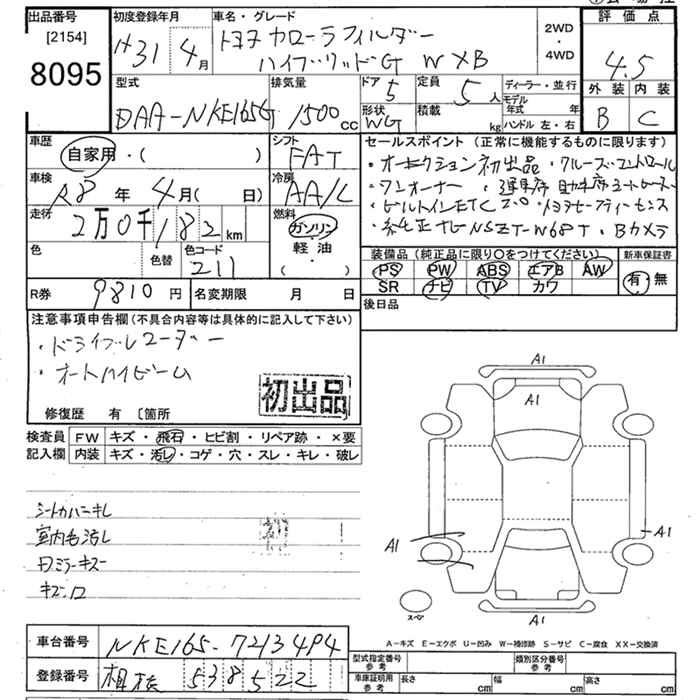 出品番号
[2154]
8095
初度登録年月
H31 4月
車名・グレード
トヨタ カローラフィルダー
ハイブリッドG W×B
2WD
・
4WD
評価点
4.5
外装 内装
B C
型式
DAA-NKE165G
排気量
1500 cc
ドア
5
形状
WG
定員
5人
積載
kg
ディーラー・並行
モデル年式 年
ハンドル 左・右
車歴
自家用・( )
シフト
FAT
車検
R8年 4月( 日)
冷房
AA/C
走行
2万0千182km
燃料
ガソリン
・
軽油
・
( )
色
色替
色コード
211
R券
9810円
名変期限 月 日
セールスポイント (正常に機能するものに限ります)
・オークション初出品 ・クルーズコントロール
・ワンオーナー ・運転席 助手席シートヒーター
・ビルトインETC2.0 ・トヨタセーフティーセンス
・純正ナビNSZT-W68T ・Bカメラ
装備品 (純正品に限り○をつけてください)
PS PW ABS エアB AW
SR ナビ TV カワ
新車保証書
有・無
後日品
注意事項申告欄 (不具合内容等は具体的に記入して下さい)
・ドライブレコーダー
・オートハイビーム
初出品
修復歴 有 〔箇所
検査員記入欄
FW キズ・飛石・ヒビ割・リペア跡・×要
内装 キズ・汚レ・コゲ・穴・スレ・キレ・破レ
シートカバーキレ
室内毛汚レ
Rミラーキズ
キズ.凹
A1
A1
A1
A1
スペア
A1
A-キズ E-エクボ U-凹み W-補修跡 S-サビ C-腐食 XX-交換済
車台番号
NKE165-7213494
登録番号
相模 538 522
型式指定番号
参考
類別区分番号
参考
車庫証明用
参考
長さ cm
幅 cm
高さ cm